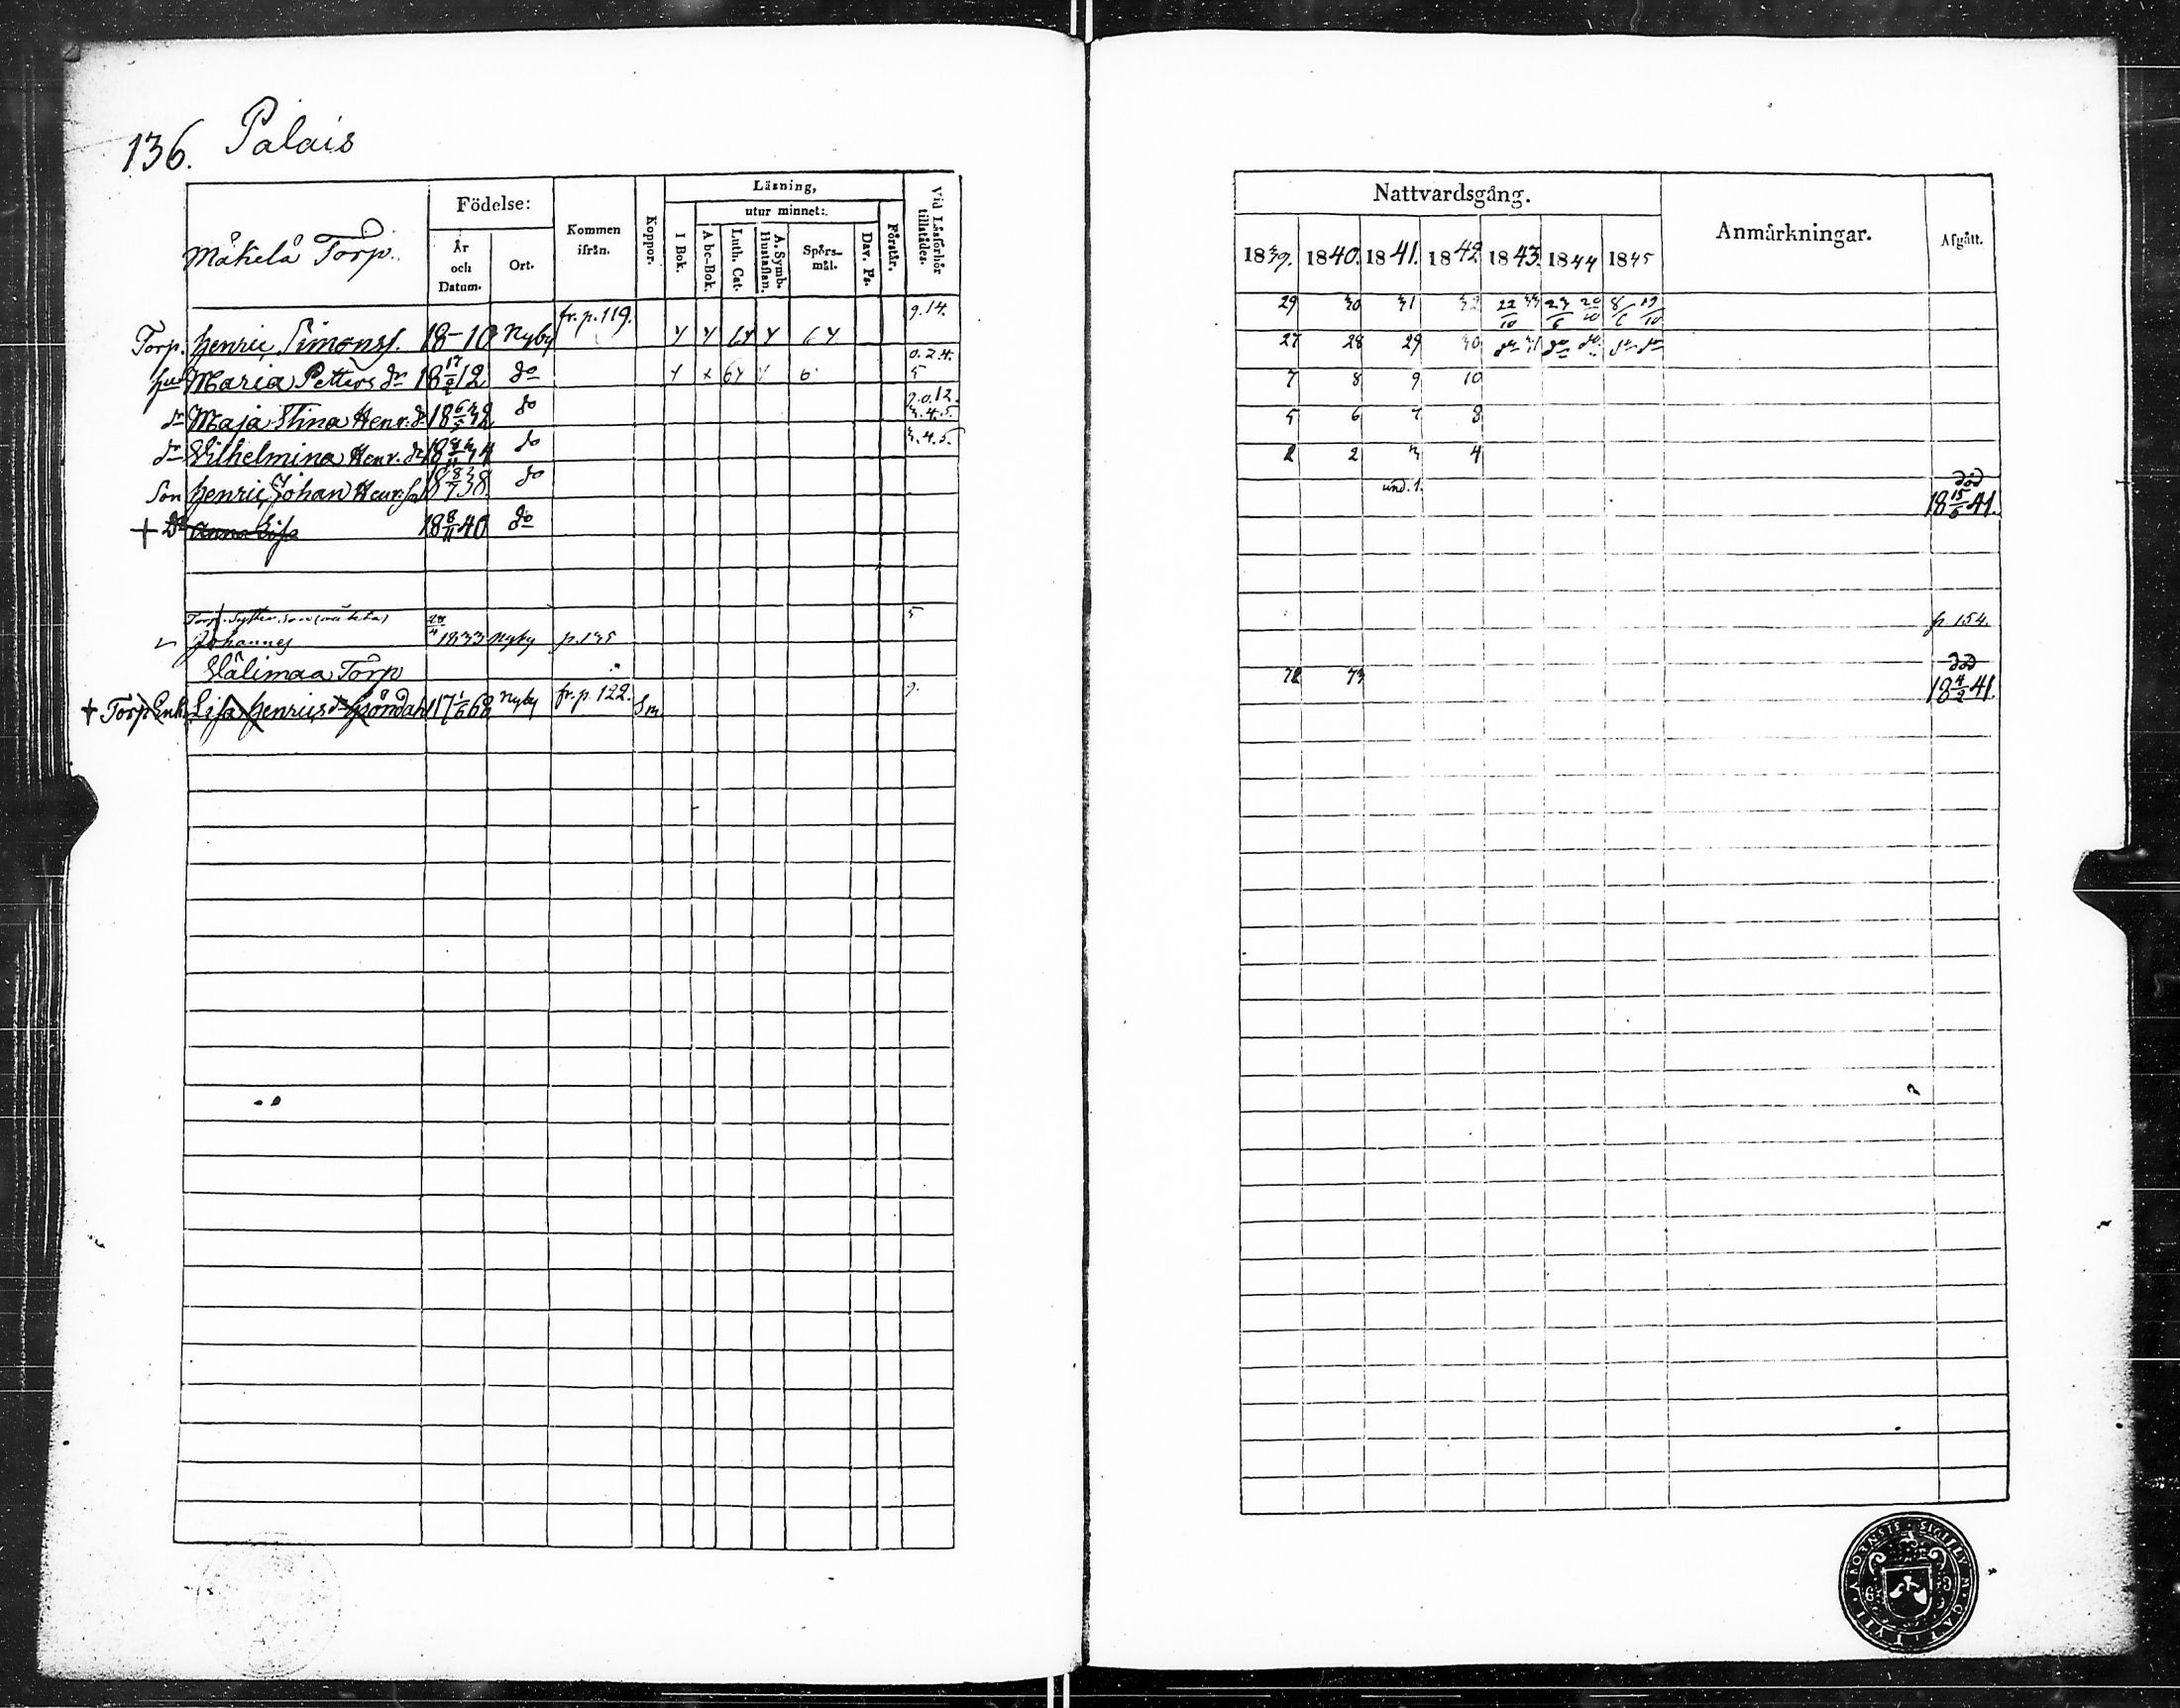 136. Palais
Måkelå Torp.
Födelse:
År och Datum.
Ort.
Kommen ifrån.
Koppor.
Läsning,
utur minnet:
I Bok.
A bc-Bok.
Luth. Cat.
A. Symb. Hustaflan.
Spörs-mål.
Dav. Ps.
Förstår.
Vid Läsförhör tillstädes.
Nattvardsgång.
1839. 1840. 1841. 1842 1843. 1844 1845
Anmärkningar.
Afgått.
Torp. Henric Simonss. 18-10 Nyby fr. p. 119. 9.14. 29 30 31 32 22/10 33 23/6 20/10 8/6 19/10
hust Maria Petters dr 18 17/2 12 do 0.2.4. 5 27 28 29 30 do 31 do do do do
dr Maja Stina Henr. dr 18 6/5 32 do 9.0.12. 3.4.5. 7 8 9 10
dr Vilhelmina Henr. dr 18 34 do 3.4.5. 5 6 7 8
Son Henric Johan Henr. son 18 8/7 38 do 1 2 3 4
+ Dr Anna Lisa 18 8/11 40 do und. 1. död 18 15/6 41.
Torp. Syster Son
Johannes 1833 Nyby p. 135 5 p. 154.
Välimaa Torp
+ Torp. Enk. Lisa Henrics dr 17 1/6 68 Nyby fr. p. 122. Sm. 9. 72 73 död 18 4/2 41.